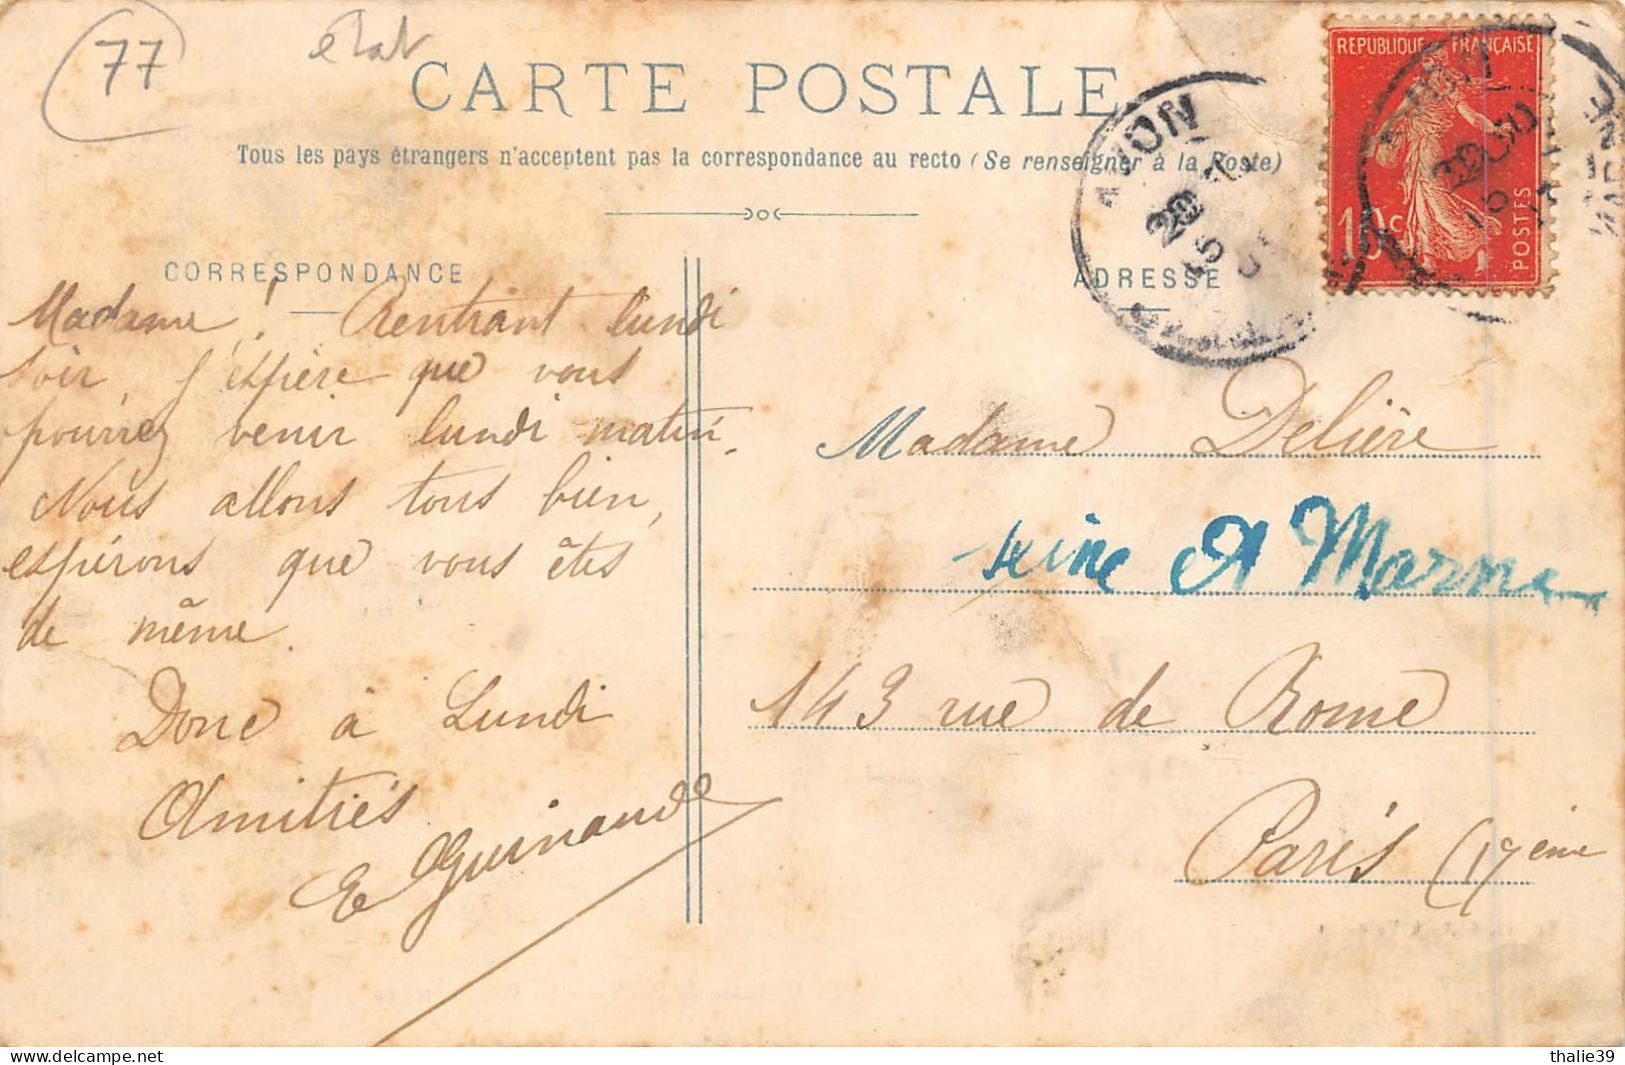 77
état
CARTE POSTALE
Tous les pays étrangers n'acceptent pas la correspondance au recto (Se renseigner à la Poste)
REPUBLIQUE FRANÇAISE
10c
POSTES
AVON
CORRESPONDANCE
ADRESSE
Madame, ! — Rentrant lundi
soir, j'espère que vous
pourrez venir lundi matin.
Nous allons tous bien,
espérons que vous êtes
de même.
Donc à Lundi
Amitiés
E Guinaud
Madame Delière
Seine et Marne
143 rue de Rome
Paris (17 ème
thalie39